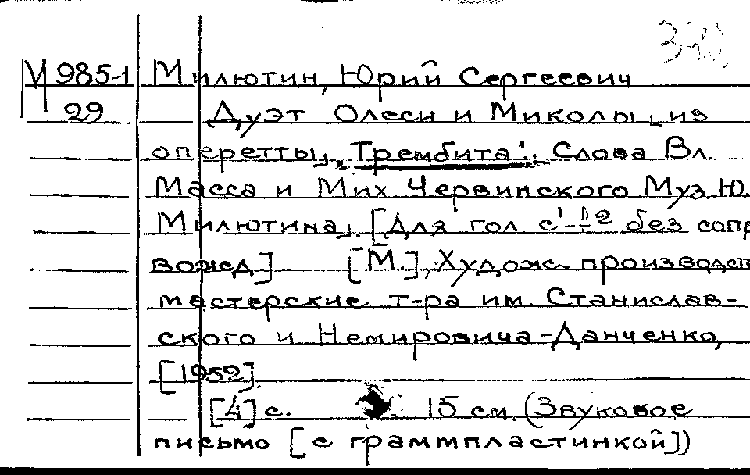 М 985-1 Милютин, Юрий Сергеевич
29 Дуэт Олеси и Миколы из
оперетты „Трембита". Слова Вл.
Масса и Мих. Червинского Муз. Ю.
Милютина. [Для гол. с без сопр
вожд.] [М.], Худож. производств
мастерские т-ра им. Станислав-
ского и Немировича-Данченко,
[1952]
[4] с. 15 см. (Звуковое
письмо [с граммпластинкой])